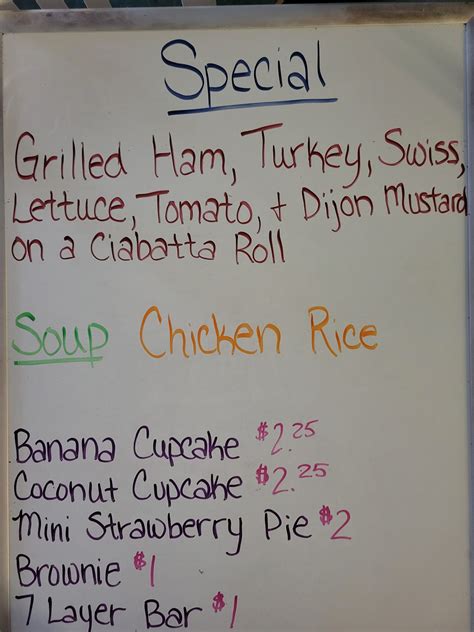 Special
Grilled Ham, Turkey, Swiss,
Lettuce, Tomato, + Dijon Mustard
on a Ciabatta Roll
Soup Chicken Rice
Banana Cupcake $2.25
Coconut Cupcake $2.25
Mini Strawberry Pie $2
Brownie $1
7 Layer Bar $1